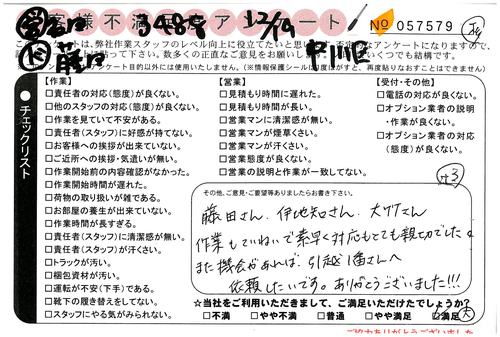 お客様不満足アンケート
34858
12/19
No 057579
中川区
このアンケートは、弊社作業スタッフのレベル向上に役立てたいと思い
数多くの正直なご意見をお願い
アンケート目的以外には使用いたしません。(※情報保護シールは
再度貼りなおすことはできません)
●チェックリスト
【作業】
□責任者の対応(態度)が良くない。
□他のスタッフの対応(態度)が良くない。
□作業を見ていて不安がある。
□責任者(スタッフ)に好感が持てない。
□お客様への挨拶が出来ていない。
□ご近所への挨拶・気遣いが無い。
□作業開始前の内容確認がなかった。
□作業開始時間が遅れた。
□荷物の取り扱いが雑である。
□お部屋の養生が出来ていない。
□作業時間が長すぎる。
□責任者(スタッフ)に清潔感が無い。
□責任者(スタッフ)が汗くさい。
□トラックが汚い。
□梱包資材が汚い。
□運転が不安(下手)である。
□靴下の履き替えをしてない。
□スタッフにやる気がみられない。
【営業】
□見積もり時間に遅れた。
□見積もり時間が長い。
□営業マンに清潔感が無い。
□営業マンが煙草くさい。
□営業マンが汗くさい。
□営業態度が良くない。
□営業の説明と作業が一致してない。
【受付・その他】
□電話の対応が良くない。
□オプション業者の説明
・作業が良くない。
□オプション業者の対応
(態度)が良くない。
その他、ご意見・ご要望等ありましたらお書き下さい。
藤田さん、伊地知さん、大竹さん
作業もていねいで素早く対応もとても親切でした。
また機会があれば、引越1番さんへ
依頼したいです。ありがとうございました!!!
☆当社をご利用いただきまして、ご満足いただけたでしょうか?
□不満 □やや不満 □普通 □やや満足 □満足 大
ご協力ありがとうございました